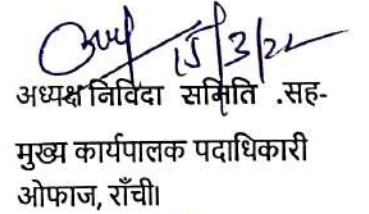 15/3/22
अध्यक्ष निविदा समिति .सह-
मुख्य कार्यपालक पदाधिकारी
ओफाज, राँची।